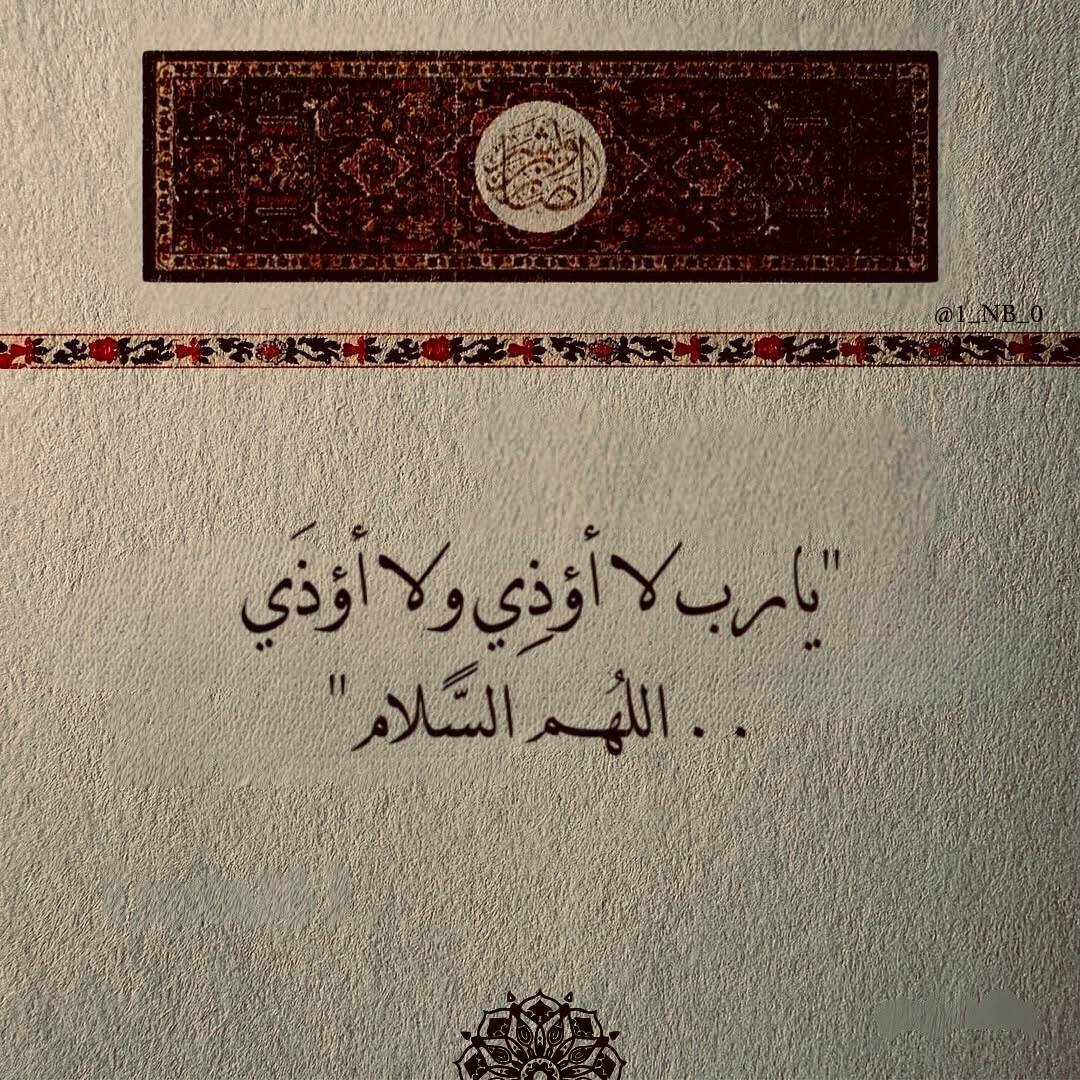 @1_NB_0
"يارب لا أؤذِي ولا أؤذَي
. . اللهُم السَّلام"